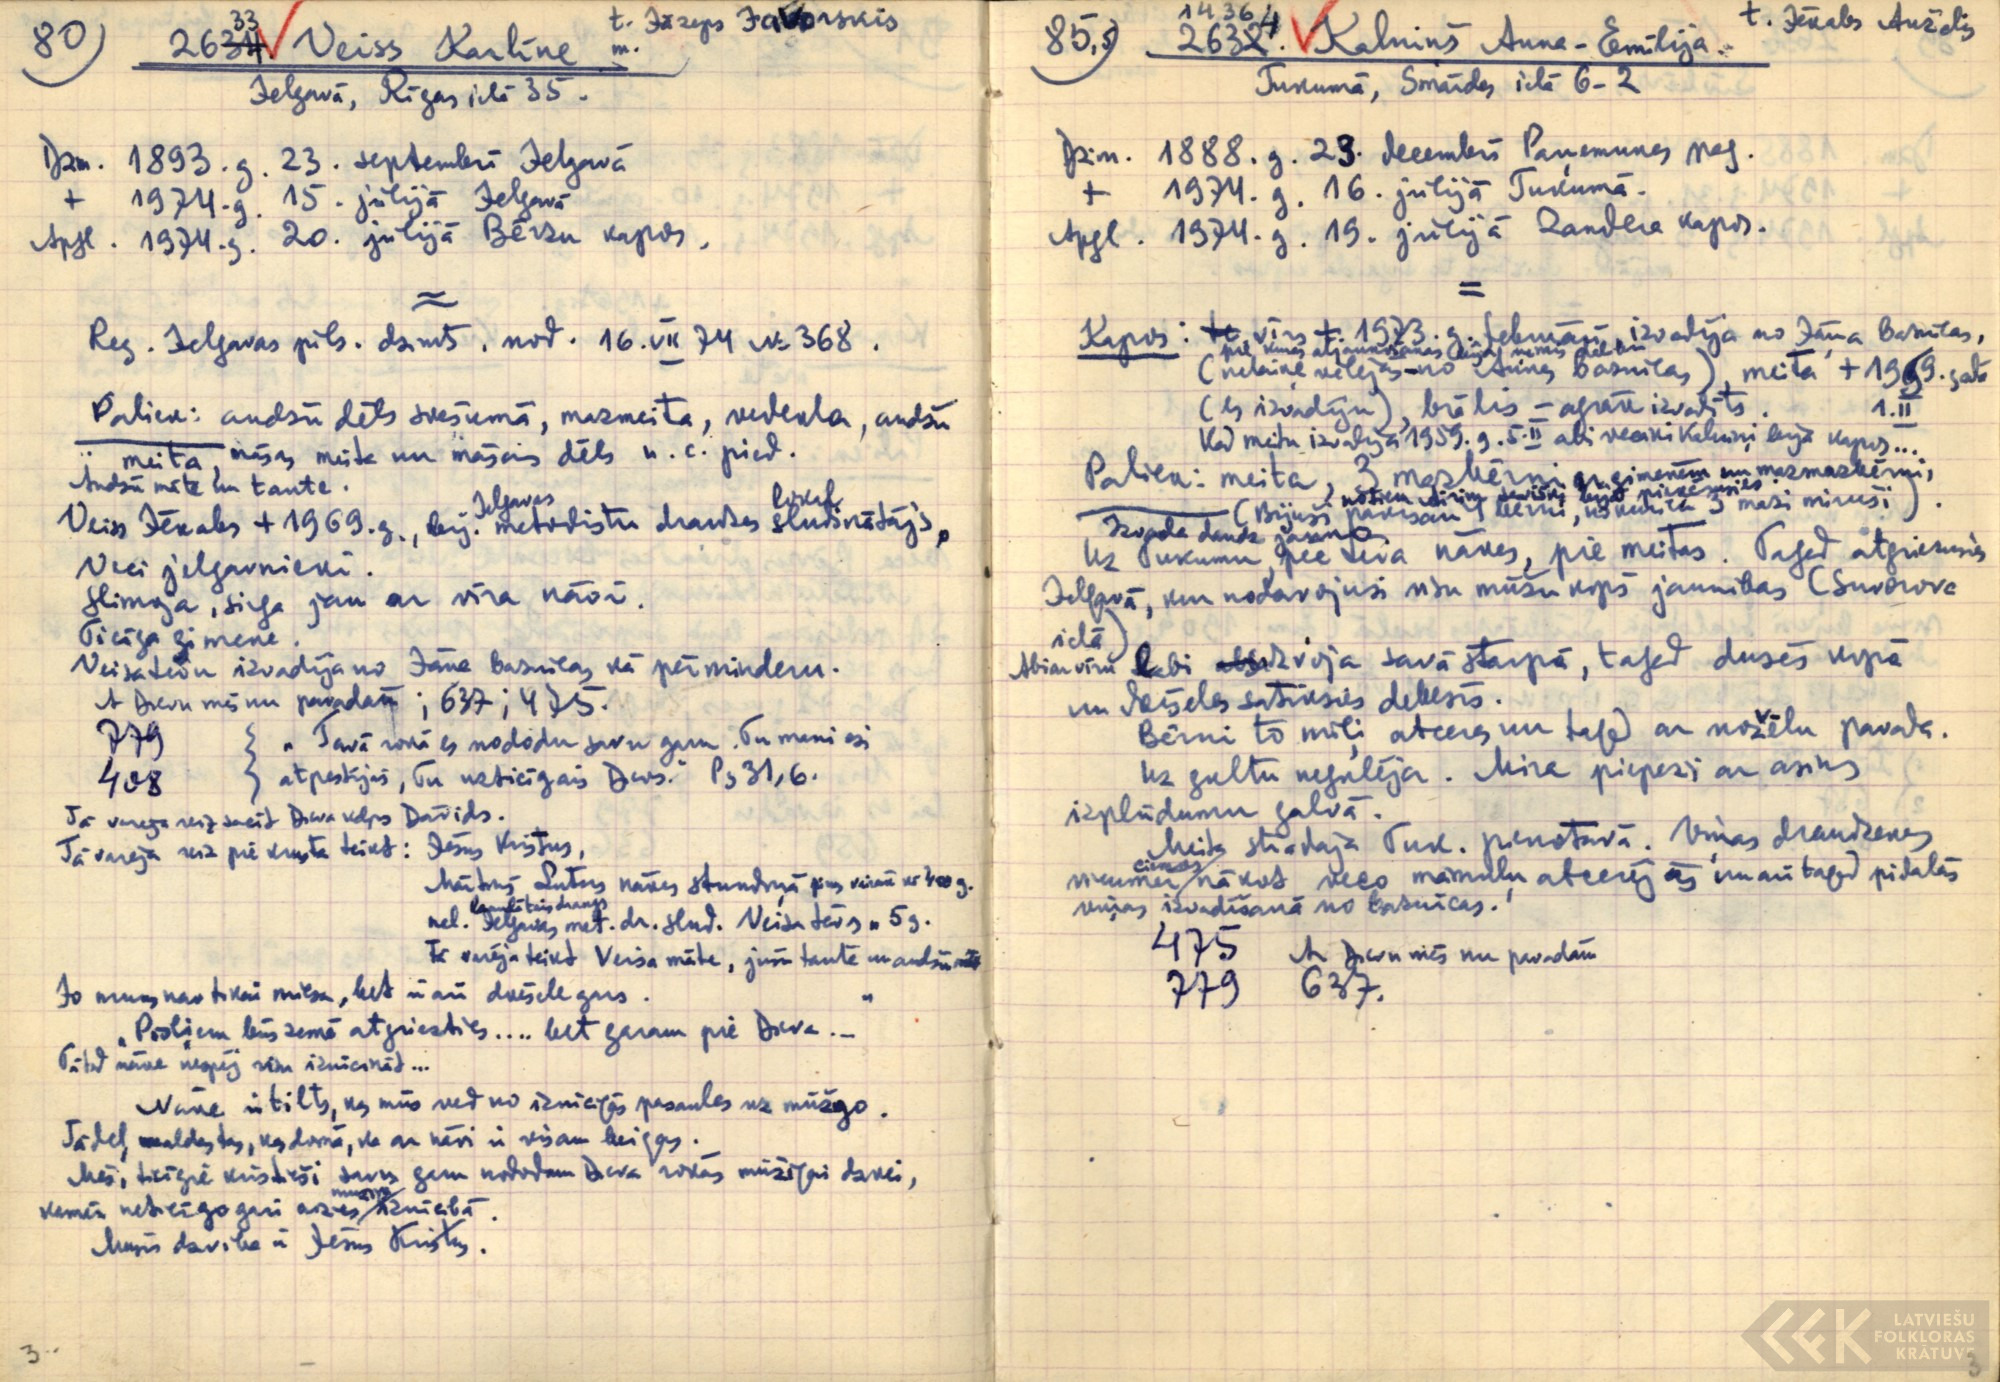 80) 2634 33 Veiss Karlīne t. Jāzeps Javorskis
m.
Jelgavā, Rīgas ielā 35.
Dzm. 1893. g. 23. septembrī Jelgavā
+ 1974. g. 15. jūlijā Jelgavā
Apgl. 1974. g. 20. jūlijā Bērzu kapos.
=
Reg. Jelgavas pils. dzimts. nod. 16. VII 74 № 368.
Paliek: audžu dēls svešumā, mazmeita, vedekla, audžu
meita, māsas meita un māsas dēls u.c. pied.
Audžu māte un tante.
Jelgavas
Veiss Jēkabs + 1969. g., bij. metodistu draudzes sludinātājs,
Veci jelgavnieki.
Slimoja, sirga jau ar vīra nāvi.
Ticīga ģimene.
Veisa tēvu izvadīja no Jāņa baznīcas kā pērminderu.
Ar Dievu mēs nu pavadam; 637; 475.
779 „Tavā rokā es nododu savu garu. Tu mani esi
408 atpestījis, Tu uzticīgais Dievs." Ps 31,6.
Tā varēja reiz sacīt Dieva kalps Dāvids.
Tā varēja reiz pie krusta teikt: Jēzus Kristus,
Mārtiņš Luters nāves stundiņā pirms vairāk kā 400 g.
nel. Jelgavas met. dr. slud. Veisa tēvs „ 5 g.
Tā varēja teikt Veisa māte, jūsu tante un audžu māte
Jo mums nav tikai miesa, bet ir arī dvēsele gars.
„Pīšļiem būs zemē atgriezties.... bet garam pie Dieva.—
Tātad nāve nespēj visu iznīcināt...
Nāve ir tilts, kas mūs ved no iznīcīgās pasaules uz mūžīgo.
Tādēļ, maldās tas, kas domā, ka ar nāvi ir visam beigas.
Mēs, ticīgie kristieši savu garu nododam Dieva rokās mūžīgai dzīvei,
kamēr neticīgo gari aizies iznīcībā.
Mūsu dzīvība ir Jēzus Kristus.
3
85,5) 2632. 1436 4 Kalniņš Anna-Emīlija. t. Jēkabs Aužēlis
Tukumā, Smārdes ielā 6-2
Dzim. 1888. g. 23. decembrī Panemunes pag.
+ 1974. g. 16. jūlijā Tukumā.
Apgl. 1974. g. 19. jūlijā Zandera kapos.
=
Kapos: vīrs + 1973. g. februārī, izvadīja no Jāņa baznīcas,
(nelaiķe vēlējās no Annas baznīcas), meita + 1969. gadā
(es izvadīju), brālis – agrāk izvadīts. 1.II
Kad meitu izvadīja 1959. g. 5.II abi vecāki Kalniņi bija kapos...
Paliek: meita, 3 mazbērni ar ģimenēm un mazmazbērni,
(Bijuši pavisam bērni, no kuriem 3 mazi miruši).
Izvada daudz jaunu
Uz Tukumu pie Teva nāves, pie meitas. Tagad atgriezusies
Jelgavā, kur nodzīvojusi visu mūžu kopš jaunības (Suvorova
ielā)
Abi ar vīru labi dzīvoja savā starpā, tagad dusēs kopā
un dvēseles satiksies debesīs.
Bērni to mīļi atceras un tagad ar nožēlu pavada.
Uz gultu negulēja. Mira piepeši ar asins
izplūdumu galvā.
Meita strādāja Tuk. pienotavā. Viņas draudzenes
ciemos
vienmēr nākot veco māmuļu atcerējās un arī tagad pidalās
viņas izvadīšanā no baznīcas.
475 Ar Dievu mēs nu pavadām
779 637.
LATVIEŠU
FOLKLORAS
KRĀTUVE
3